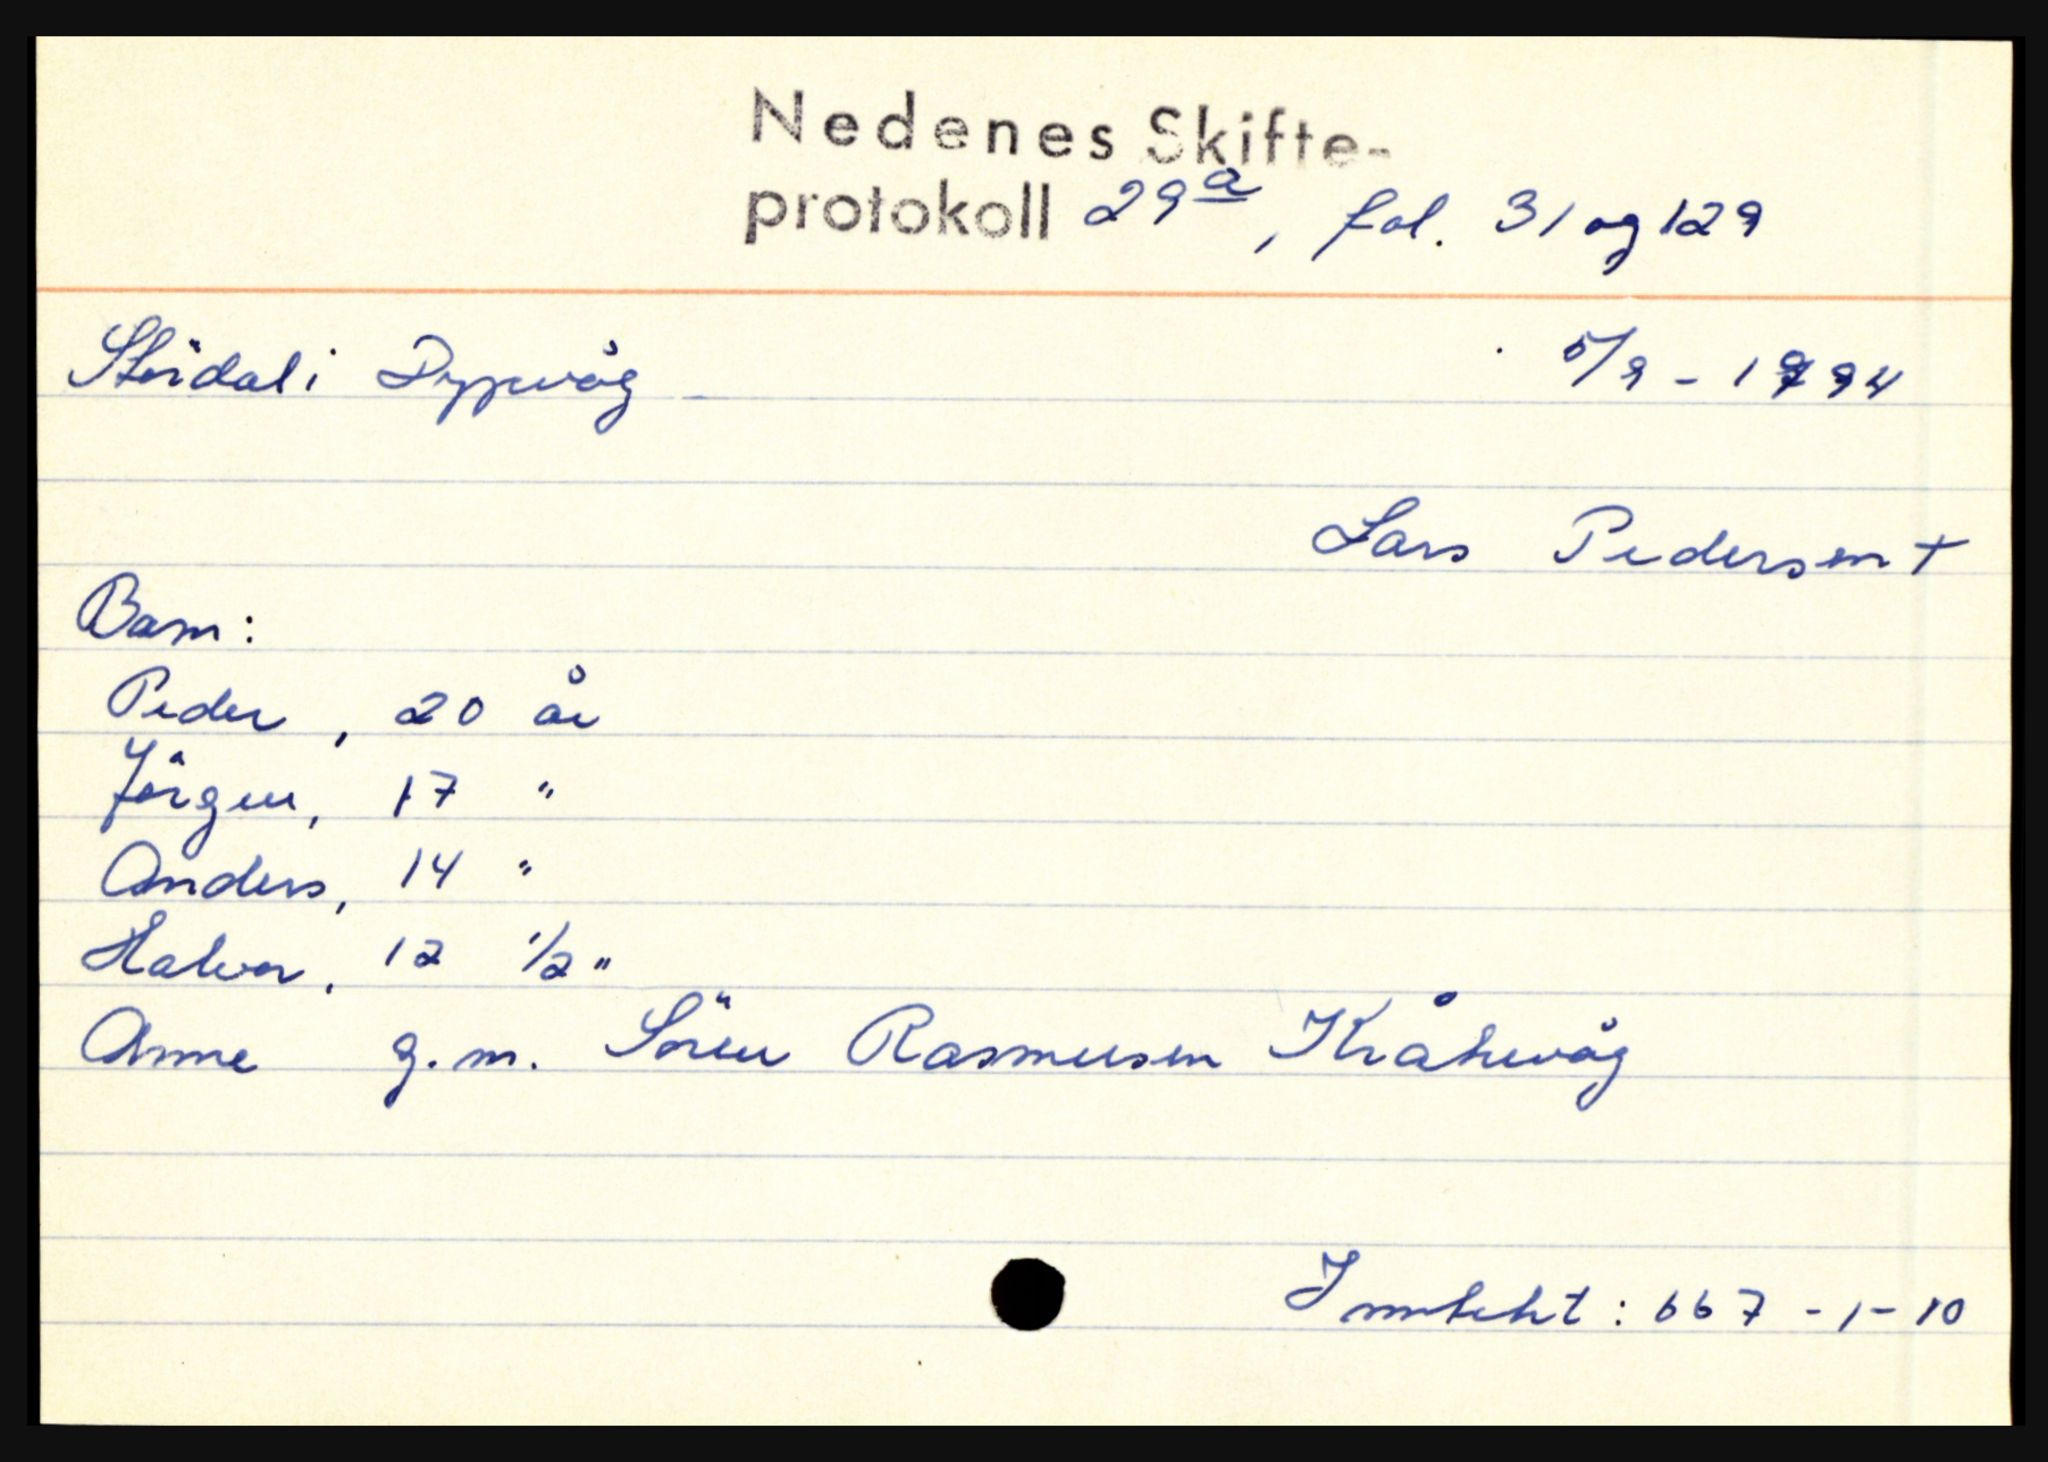 Nedenes Skifte-
protokoll 29a, fol. 31 og 129
Stördal i Dypvåg 5/9 - 1794
Lars Pedersen +
Barn:
Peder, 20 år
Jörgen, 17 "
Anders, 14 "
Halvor, 12 1/2 "
Anne g.m. Sören Rasmusen Kråkevåg
Inntekt: 667 - 1 - 10